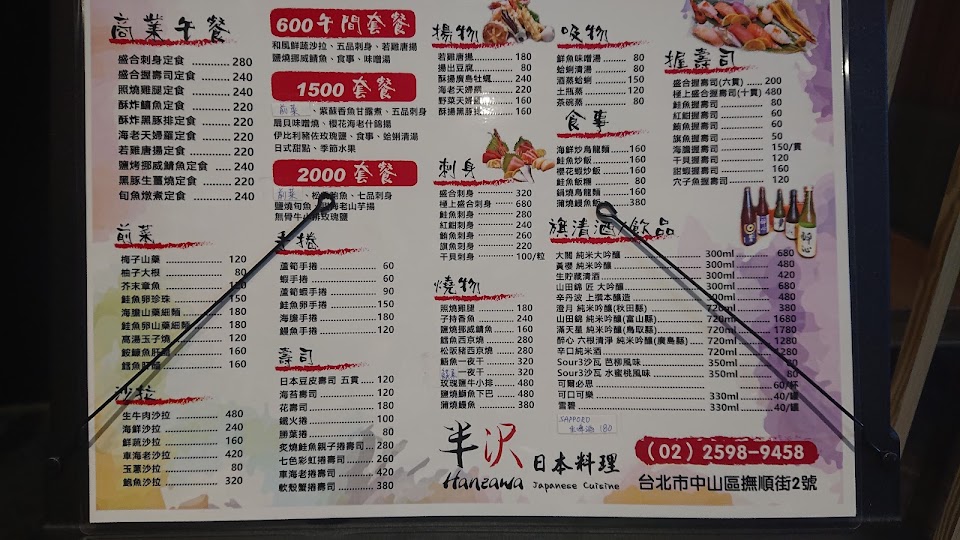 商業午餐
盛合刺身定食 280
盛合握壽司定食 240
照燒雞腿定食 240
酥炸鱺魚定食 220
酥炸黑豚排定食 220
海老天婦羅定食 220
若雞唐揚定食 220
鹽烤挪威鯖魚定食 240
黑豚生薑燒定食 220
旬魚燉煮定食 240
前菜
梅子山藥 120
柚子大根 80
芥末章魚
鮭魚卵珍珠 150
海膽山藥細麵 180
鮭魚卵山藥細麵 180
高湯玉子燒 120
鮟鱇魚肝 160
鱈魚肝 160
沙拉
生牛肉沙拉 480
海鮮沙拉 240
鮮蔬沙拉 160
車海老沙拉 220
玉蔥沙拉 80
鮑魚沙拉 320
600 午間套餐
和風鮮蔬沙拉、五品刺身、若雞唐揚
鹽燒挪威鯖魚、食事、味噌湯
1500 套餐
前菜、紫蘇香魚甘露煮、五品刺身
扇貝味噌燒、櫻花海老什錦揚
伊比利豬佐玫瑰鹽、食事、蛤蜊清湯
日式甜點、季節水果
2000 套餐
前菜、松 鮑魚、七品刺身
鹽燒旬魚、 海老山芋揚
無骨牛小排玫瑰鹽
手捲
蘆筍手捲 60
蝦手捲 60
蘆筍蝦手捲 90
鮭魚卵手捲 150
海膽手捲 180
鰻魚手捲 120
壽司
日本豆皮壽司 五貫 120
海苔壽司 120
花壽司 180
鐵火捲 100
勝葉捲 80
炙燒鮭魚親子捲壽司 280
七色彩虹捲壽司 260
車海老捲壽司 420
軟殼蟹捲壽司 380
揚物
若雞唐揚 180
揚出豆腐 80
酥揚廣島牡蠣 240
海老天婦羅 220
野菜天婦羅 160
酥揚黑豚排 160
刺身
盛合刺身 320
極上盛合刺身 680
鮭魚刺身 280
紅魽刺身 240
鮪魚刺身 260
旗魚刺身 220
干貝刺身 100/粒
燒物
照燒雞腿 180
子持香魚 240
鹽燒挪威鯖魚 160
鱈魚西京燒 280
松阪豬西京燒 280
鮨魚一夜干 320
一夜干 320
玫瑰鹽牛小排 480
鹽燒鰤魚下巴 480
蒲燒鰻魚 380
吸物
鮮魚味噌湯 80
蛤蜊清湯 80
酒蒸蛤蜊 150
土瓶蒸 120
茶碗蒸 80
食事
海鮮炒烏龍麵 160
鮭魚炒飯 160
櫻花蝦炒飯 160
鮭魚飯糰 80
鍋燒烏龍麵 160
蒲燒鰻魚飯 380
握壽司
盛合握壽司(六貫) 200
極上盛合握壽司(十貫) 480
鮭魚握壽司 80
紅魽握壽司 80
鮪魚握壽司 80
旗魚握壽司 50
海膽握壽司 150/貫
干貝握壽司 120
甜蝦握壽司 160
穴子魚握壽司 120
旗清酒/飲品
大關 純米大吟釀 300ml 680
黃櫻 純米吟釀 300ml 480
生貯藏清酒 300ml 420
山田錦 匠 大吟釀 300ml
辛丹波 上撰本釀造 300ml 480
澄月 純米吟釀(秋田縣) 720ml 380
山田錦 純米吟釀(富山縣) 720ml 1680
滿天星 純米吟釀(鳥取縣) 720ml 1780
醉心 六根清淨 純米吟釀(廣島縣) 720ml 1280
辛口純米酒 720ml 1280
Sour3沙瓦 芭柳風味 350ml
Sour3沙瓦 水蜜桃風味 350ml
可爾必思 60/杯
可口可樂 330ml 40/罐
雪碧 330ml 40/罐
SAPPORO
生啤酒 180
半沢 日本料理
Hanzawa Japanese Cuisine
(02) 2598-9458
台北市中山區撫順街2號